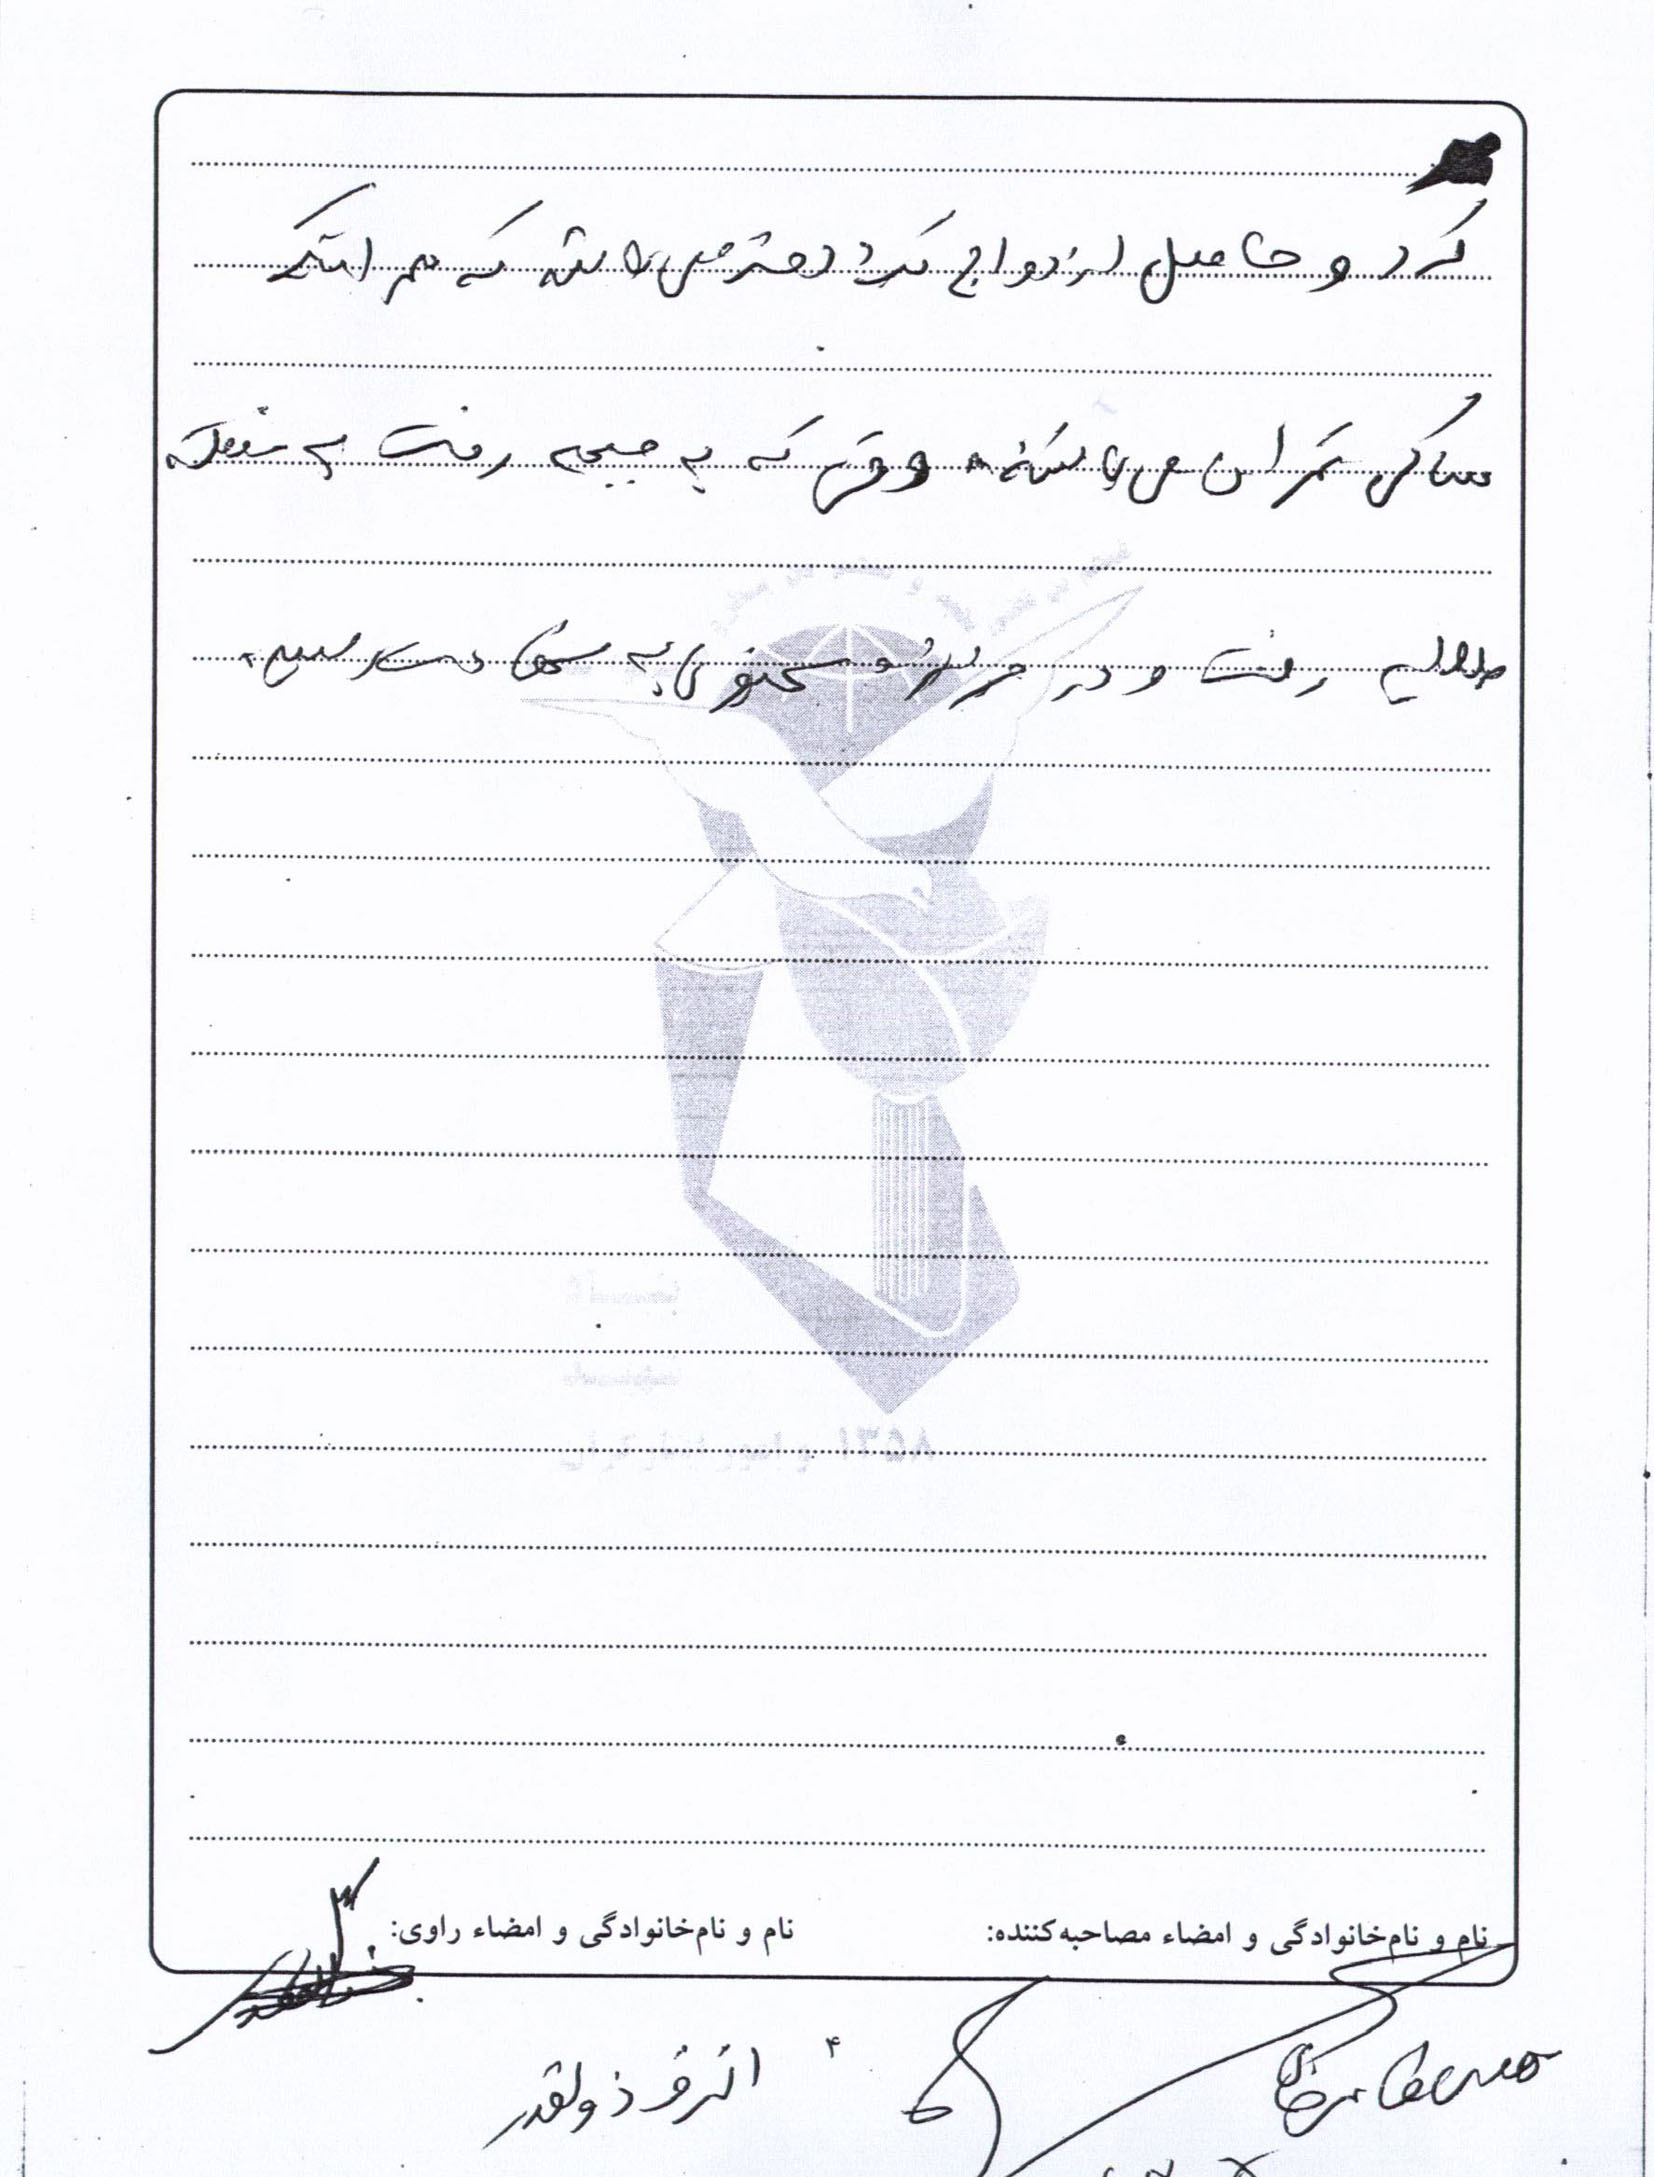 کرد و حاصل ازدواج یک دختر می باشد که هم اینک
ساکن تهران می باشند. وقتی که به جبهه رفت به منطقه
طلائیه رفت و در جزیره مجنون به شهادت رسید.
۱۳۵۸
نام و نام‌خانوادگی و امضاء مصاحبه‌کننده:
نام و نام‌خانوادگی و امضاء راوی:
۴
اشرف ذولقدر